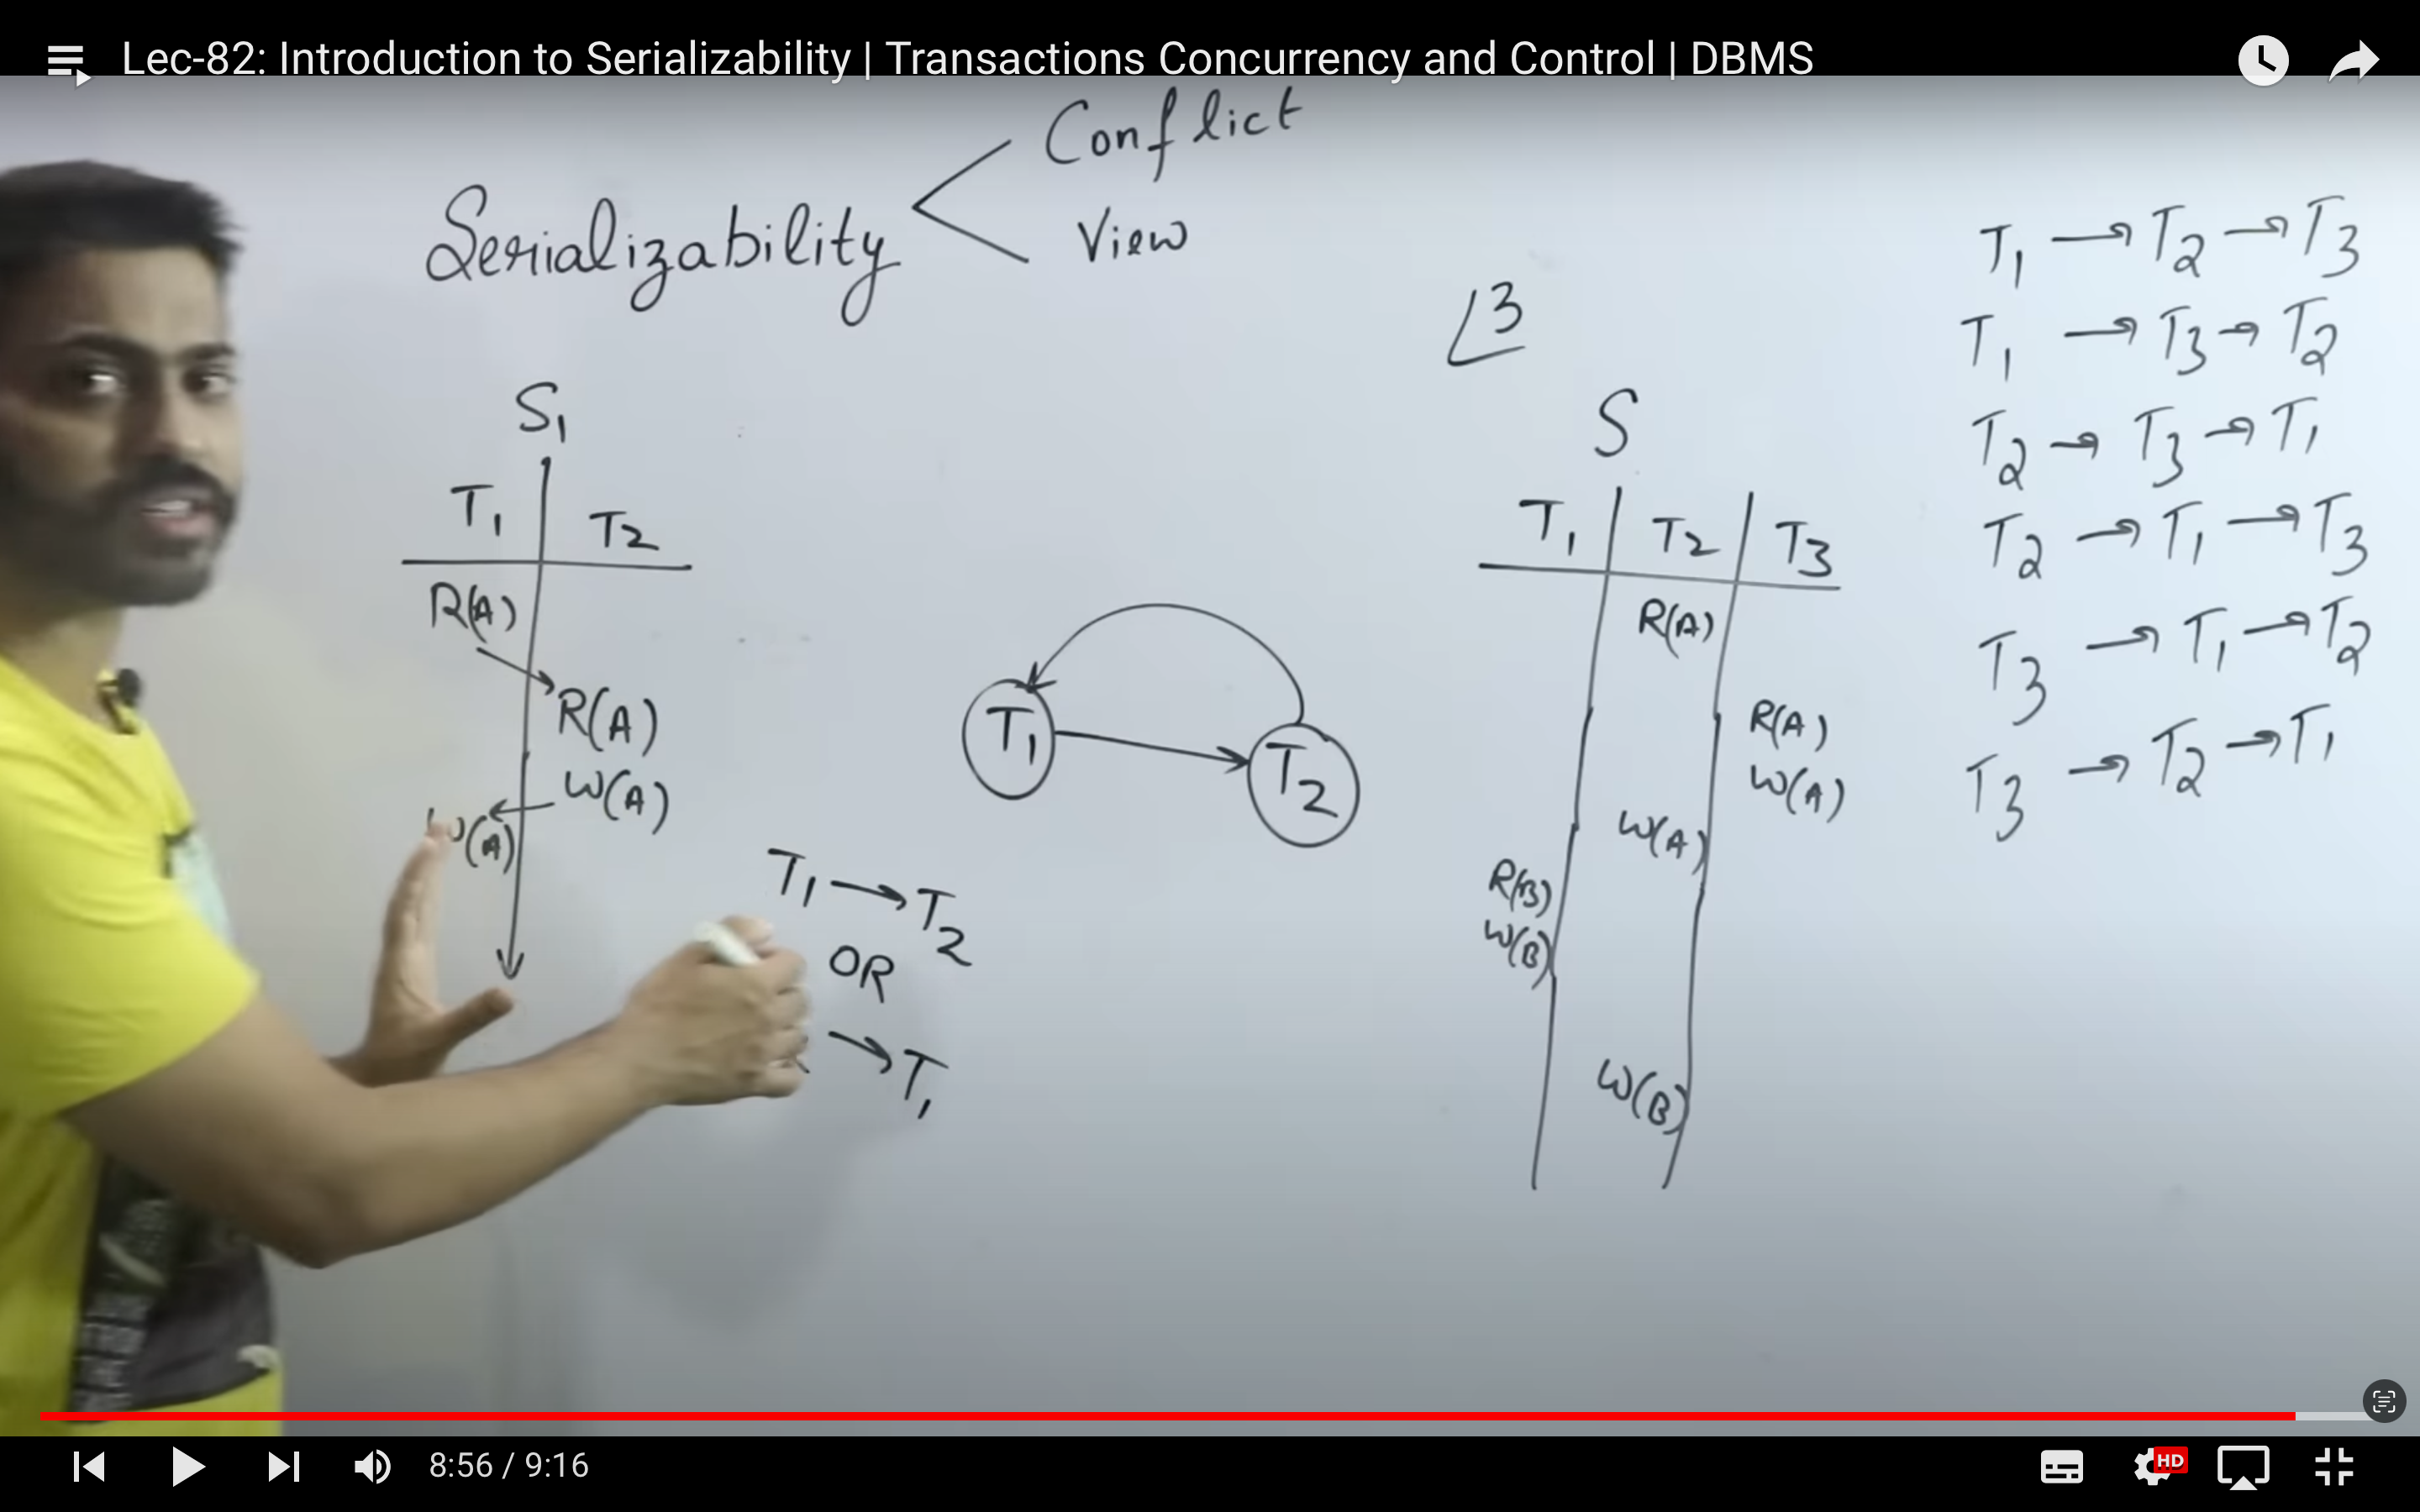 Lec-82: Introduction to Serializability | Transactions Concurrency and Control | DBMS
Serializability
Conflict
View
S1
T1 T2
R(A)
R(A)
W(A)
W(A)
T1 → T2
OR
→ T1
T1
T2
3
S
T1 T2 T3
R(A)
R(A)
W(A)
W(A)
R(B)
W(B)
W(B)
T1 → T2 → T3
T1 → T3 → T2
T2 → T3 → T1
T2 → T1 → T3
T3 → T1 → T2
T3 → T2 → T1
8:56 / 9:16
HD